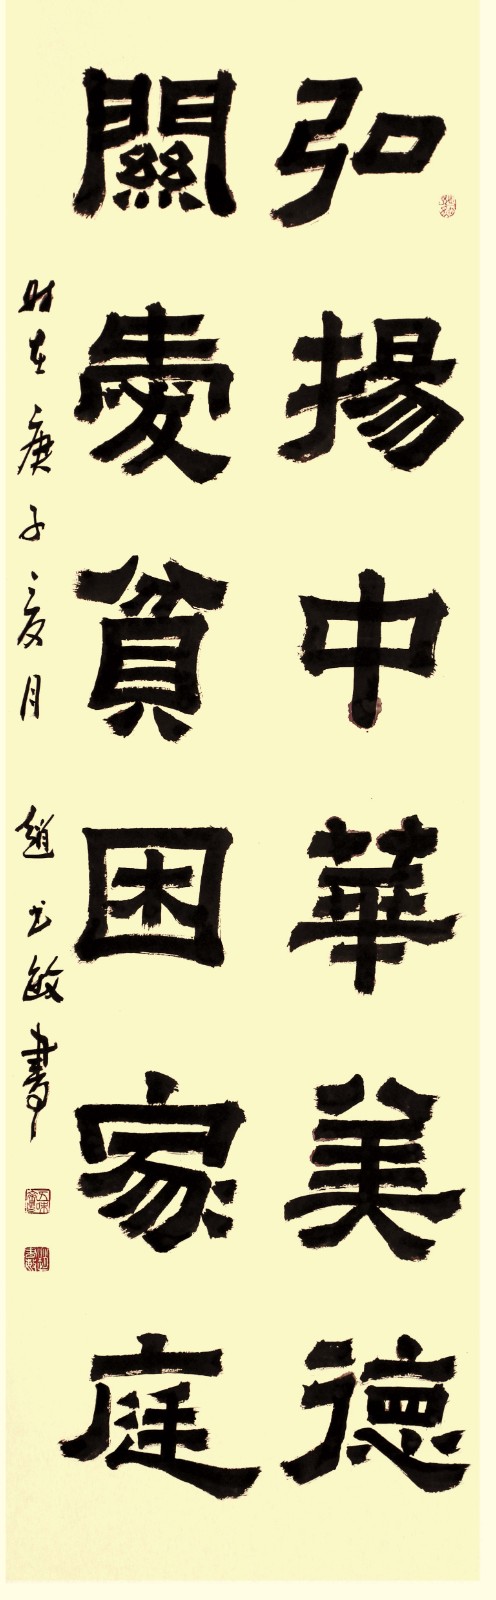 弘揚中華美德
關愛貧困家庭
時在庚子夏月 趙 敏書